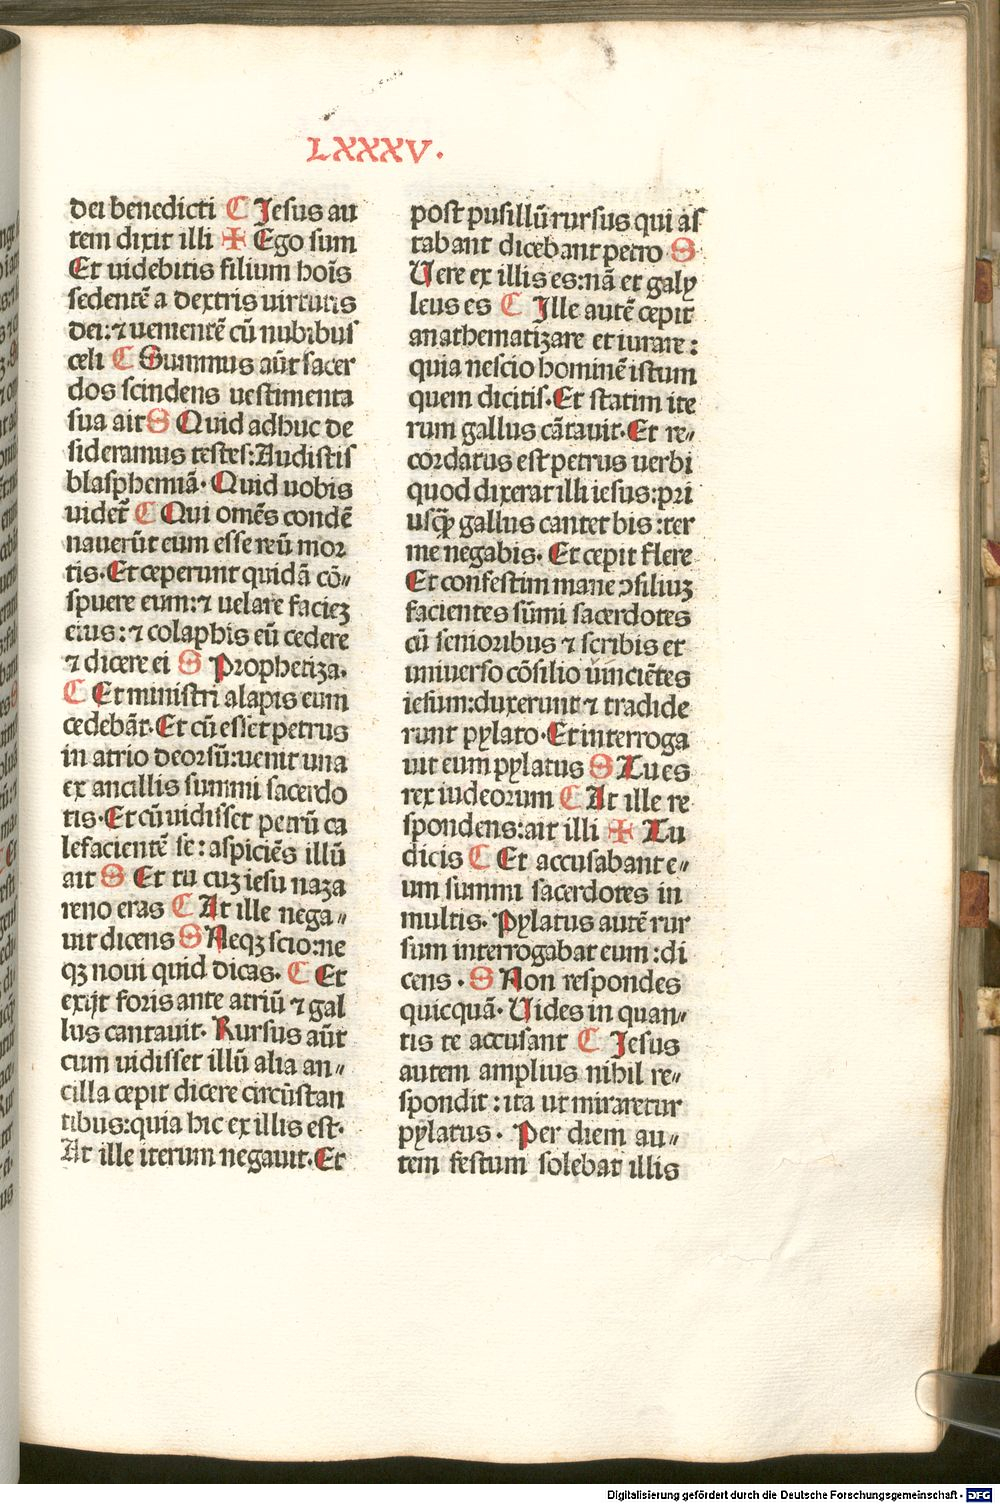 LXXXV.
dei benedicti C Jesus au
tem dixit illi ✠ Ego sum
Et videbitis filium hoīs
sedentē a dextris virtutis
dei: ⁊ venientē cū nubibus
celi C Summus aūt sacer
dos scindens vestimenta
sua ait S Quid adhuc de
sideramus testes: Audistis
blasphemiā. Quid vobis
videt̄ C Qui omēs condē
nauerūt eum esse reū mor
tis. Et ceperunt quidā cō„
spuere eum: ⁊ velare faciez
eius: ⁊ colaphis eū cedere
⁊ dicere ei S Prophetiza.
C Et ministri alapis eum
cedebāt. Et cū esset petrus
in atrio deorsū: venit vna
ex ancillis summi sacerdo
tis. Et cū vidisset petrū ca
lefacientē se: aspiciēs illū
ait S Et tu cuz iesu naza
reno eras C At ille nega„
uit dicens S Neqꝫ scio: ne
qꝫ noui quid dicas. C Et
exijt foris ante atriū ⁊ gal
lus cantauit. Rursus aūt
cum vidisset illū alia an„
cilla cepit dicere circūstan
tibus: quia hic ex illis est.
At ille iterum negauit. Et
post pusillū rursus qui as
tabant dicebant petro S
Uere ex illis es: nā et galy
leus es C Ille autē cepit
anathematizare et iurare:
quia nescio hominē istum
quem dicitis. Et statim ite
rum gallus cātauit. Et re„
cordatus est petrus verbi
quod dixerat illi iesus: pri
usqꝫ̄ gallus cantet bis: ter
me negabis. Et cepit flere
Et confestim mane ꝯsiliuz
facientes sūmi sacerdotes
cū senioribus ⁊ scribis et
vniuerso cōsilio vinciētes
iesum: duxerunt ⁊ tradide
runt pylato. Et interroga
uit eum pylatus S Tu es
rex iudeorum C At ille re
spondens: ait illi ✠ Tu
dicis C Et accusabant e„
um summi sacerdotes in
multis. Pylatus autē rur
sum interrogabat eum: di
cens. S Non respondes
quicquā. Uides in quan„
tis te accusant C Jesus
autem amplius nihil re„
spondit: ita ut miraretur
pylatus. Per diem au„
tem festum solebat illis
Digitalisierung gefördert durch die Deutsche Forschungsgemeinschaft - DFG